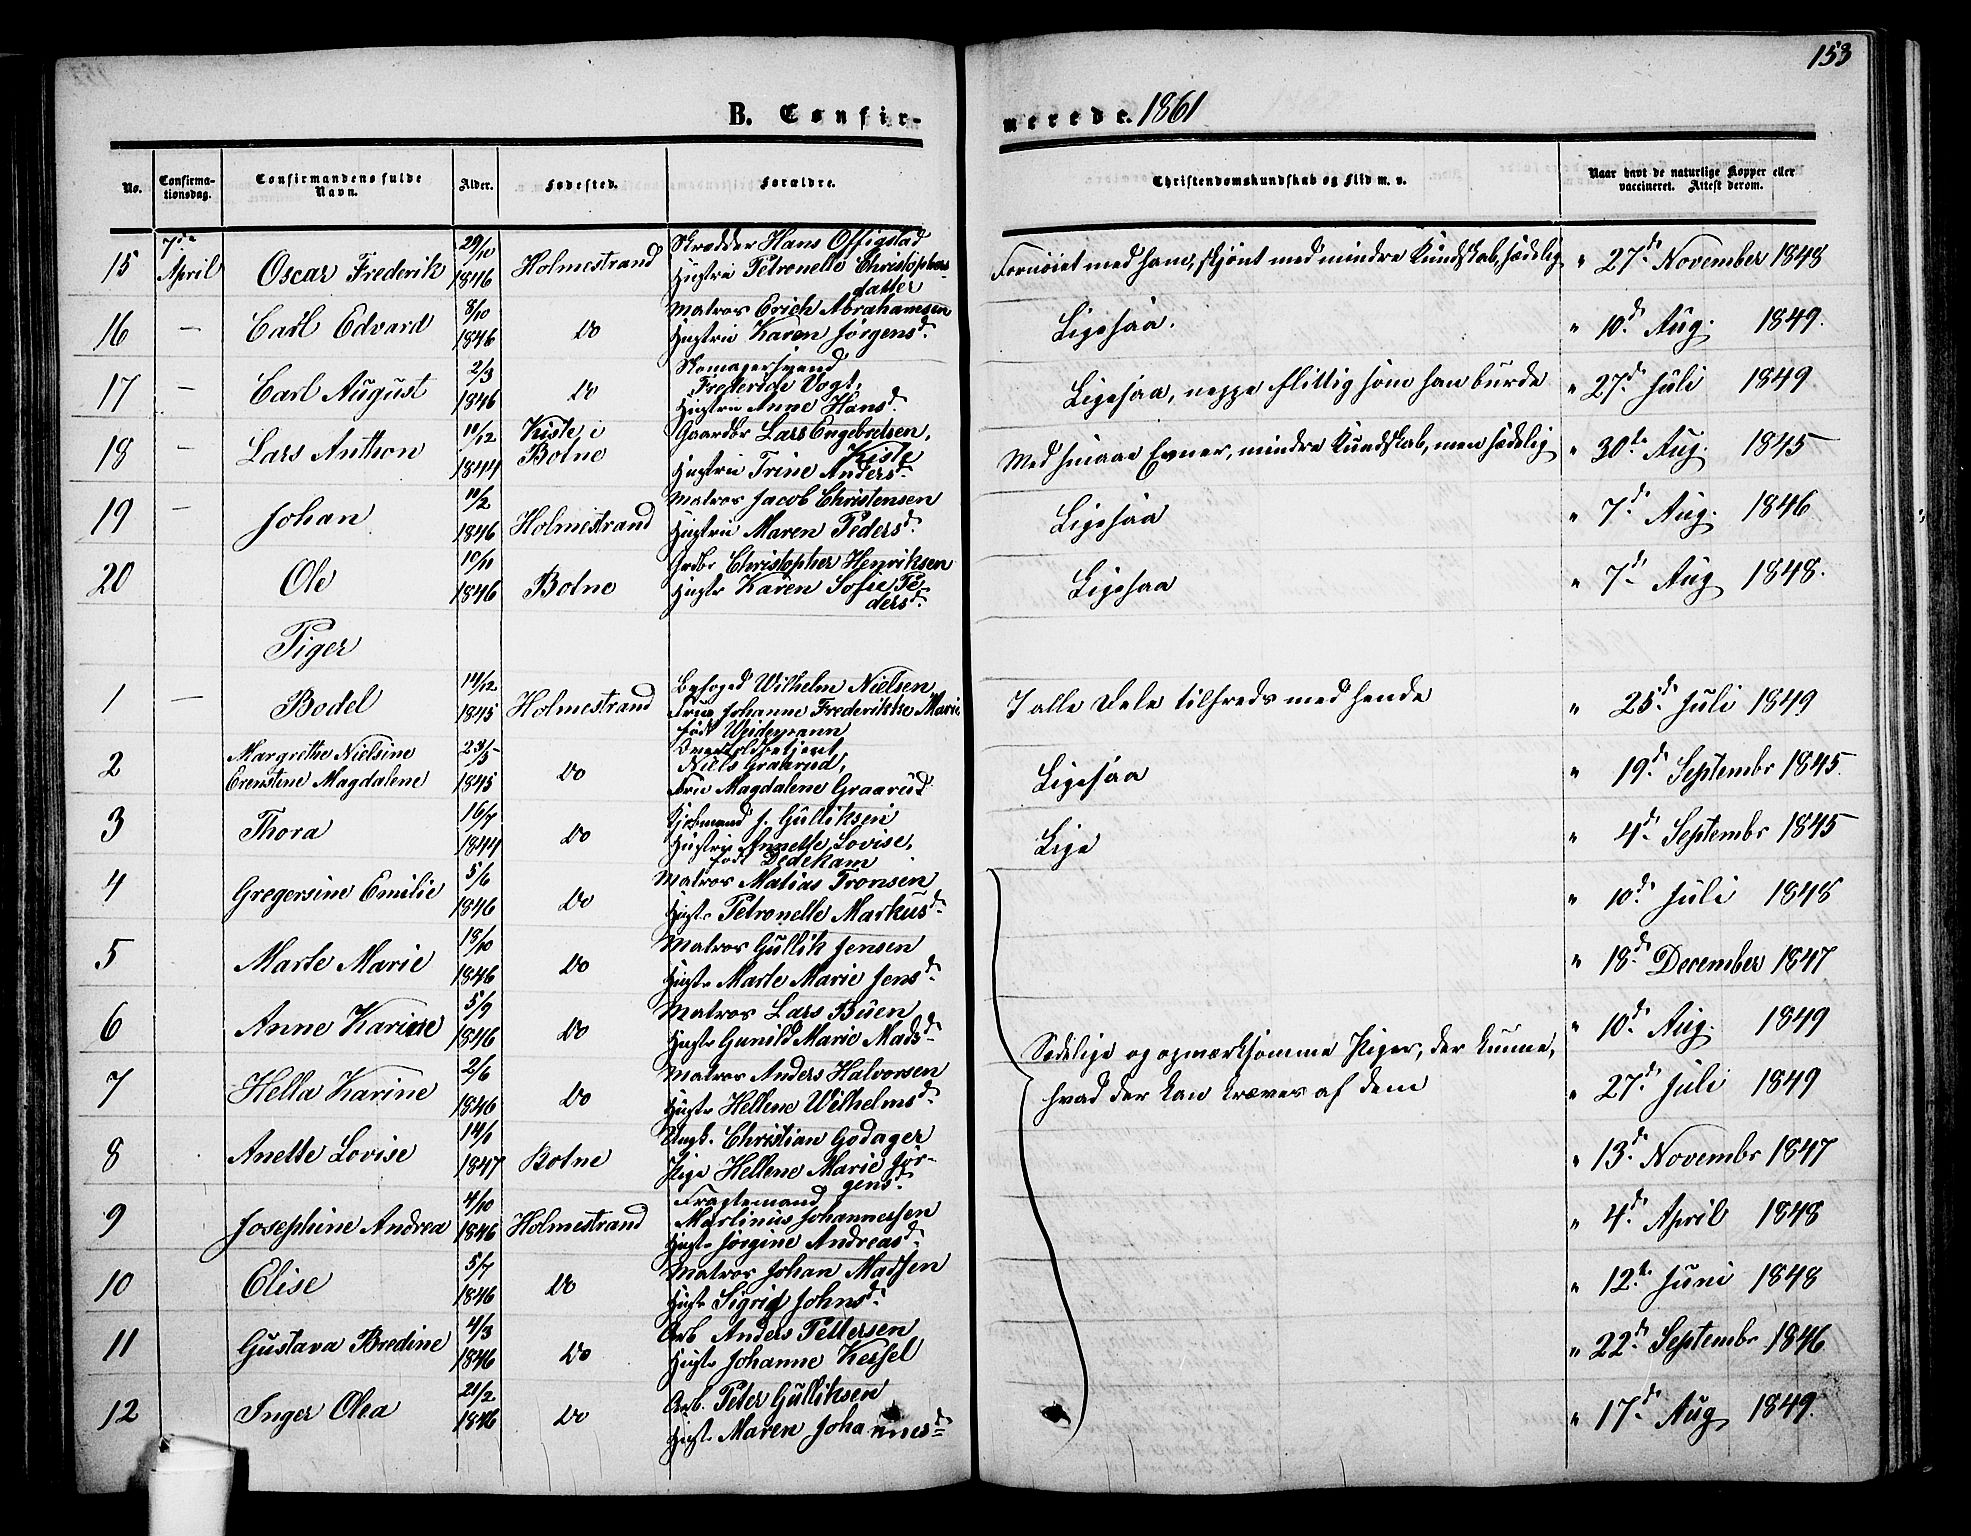 153
B. Confirmerede. 1861
No. Confirmationsdag. Confirmandens fulde Navn. Alder. Fødested. Forældre. Christendomskundskab og Flid m. v. Naar havt de naturlige Kopper eller vaccineret. Attest derom.
15 7de April Oscar Frederik 29/10 1846 Holmestrand Skrædder Hans Offigstad
Hustru Petronelle Christophersdatter Fornøiet med ham, skjønt med mindre Kundskab, sædelig " 27d. November 1848
16 — Carl Edvard 8/10 1846 Do Matros Erich Abrahamsen
Hustru Karen Jørgensd. Ligesaa. " 10d. Aug. 1849.
17 — Carl August 2/3 1846 Do Skomagersvend
Frederich Vogt,
Hustru Anne Hansd. Ligesaa, neppe flittig som han burde " 27d. Juli 1849
18 — Lars Anthon 11/12 1844 Kiste i Botne Gaardbr Lars Engebretsen, Kiste
Hustru Trine Andersd. Med smaae Evner, mindre Kundskab, men sædelig " 30te Aug. 1845
19 — Johan 11/2 1846 Holmestrand Matros Jacob Christensen
Hustru Maren Pedersd. Ligesaa " 7d. Aug. 1846
20 Ole 10/11 1846 Botne Grdbr Christopher Henriksen
Hustr Karen Sofie Pedersd. Ligesaa " 7d. Aug 1848.
Piger
1 — Bodel 14/12 1845 Holmestrand Byfoged Wilhelm Nielsen
Frue Johanne Frederikke Marie
født Weidemann I alle Dele tilfreds med hende " 25d. Juli 1849
2 Margrethe Nielsine
Erenstine Magdalene 23/5 1845 Do Overtoldbetjent
Niels Graarud,
Fru Magdalene Graarud Ligesaa " 19d. Septembr 1845.
3 Thora 16/7 1844 Do Kjøbmand J. Gulliksen
Hustru Annette Lovise,
født Dedekam Lige " 4d. Septembr 1845
4 Gregersine Emilie 5/6 1846 Do Matros Matias Tronsen
Hustr Petronelle Markusd. " 10d. Juli 1848
5 Marte Marie 18/10 1846 Do Matros Gullik Jensen
Hustr Marte Marie Jensd. " 18d. December 1847
6 Anne Karine 5/9 1846 Do Matros Lars Buen
Hustr Gunild Marie Madsd. " 10d. Aug. 1849
Sædelige og opmærksomme Piger, der kunne,
hvad der kan kræves af dem
7 Hella Karine 2/6 1846 Do Matros Anders Halvorsen
Hustr Hellene Wilhelmsd. " 27d. Juli 1849
8 Anette Lovise 14/1 1847 Botne Ungk. Christian Godager
Pige Hellene Marie Jørgensd. " 13d. Novembr 1847
9 Josephine Andrea 4/10 1846 Holmestrand Fragtemand
Martinus Johannessen
Hustr Jørgine Andreasd. " 4d. April 1848
10 Elise 5/7 1846 Do Matros Johan Madsen
Hustr Sigrid Johnsd. " 12te Juni 1848
11 Gustava Bredine 4/3 1846 Do Arb Anders Pettersen
Hustr Johanne Kessel " 22d. Septembr 1846
12 Inger Olea 21/2 1846 Do Arb. Peter Gulliksen
Hustr Maren Johannesd. " 17d. Aug 1849.